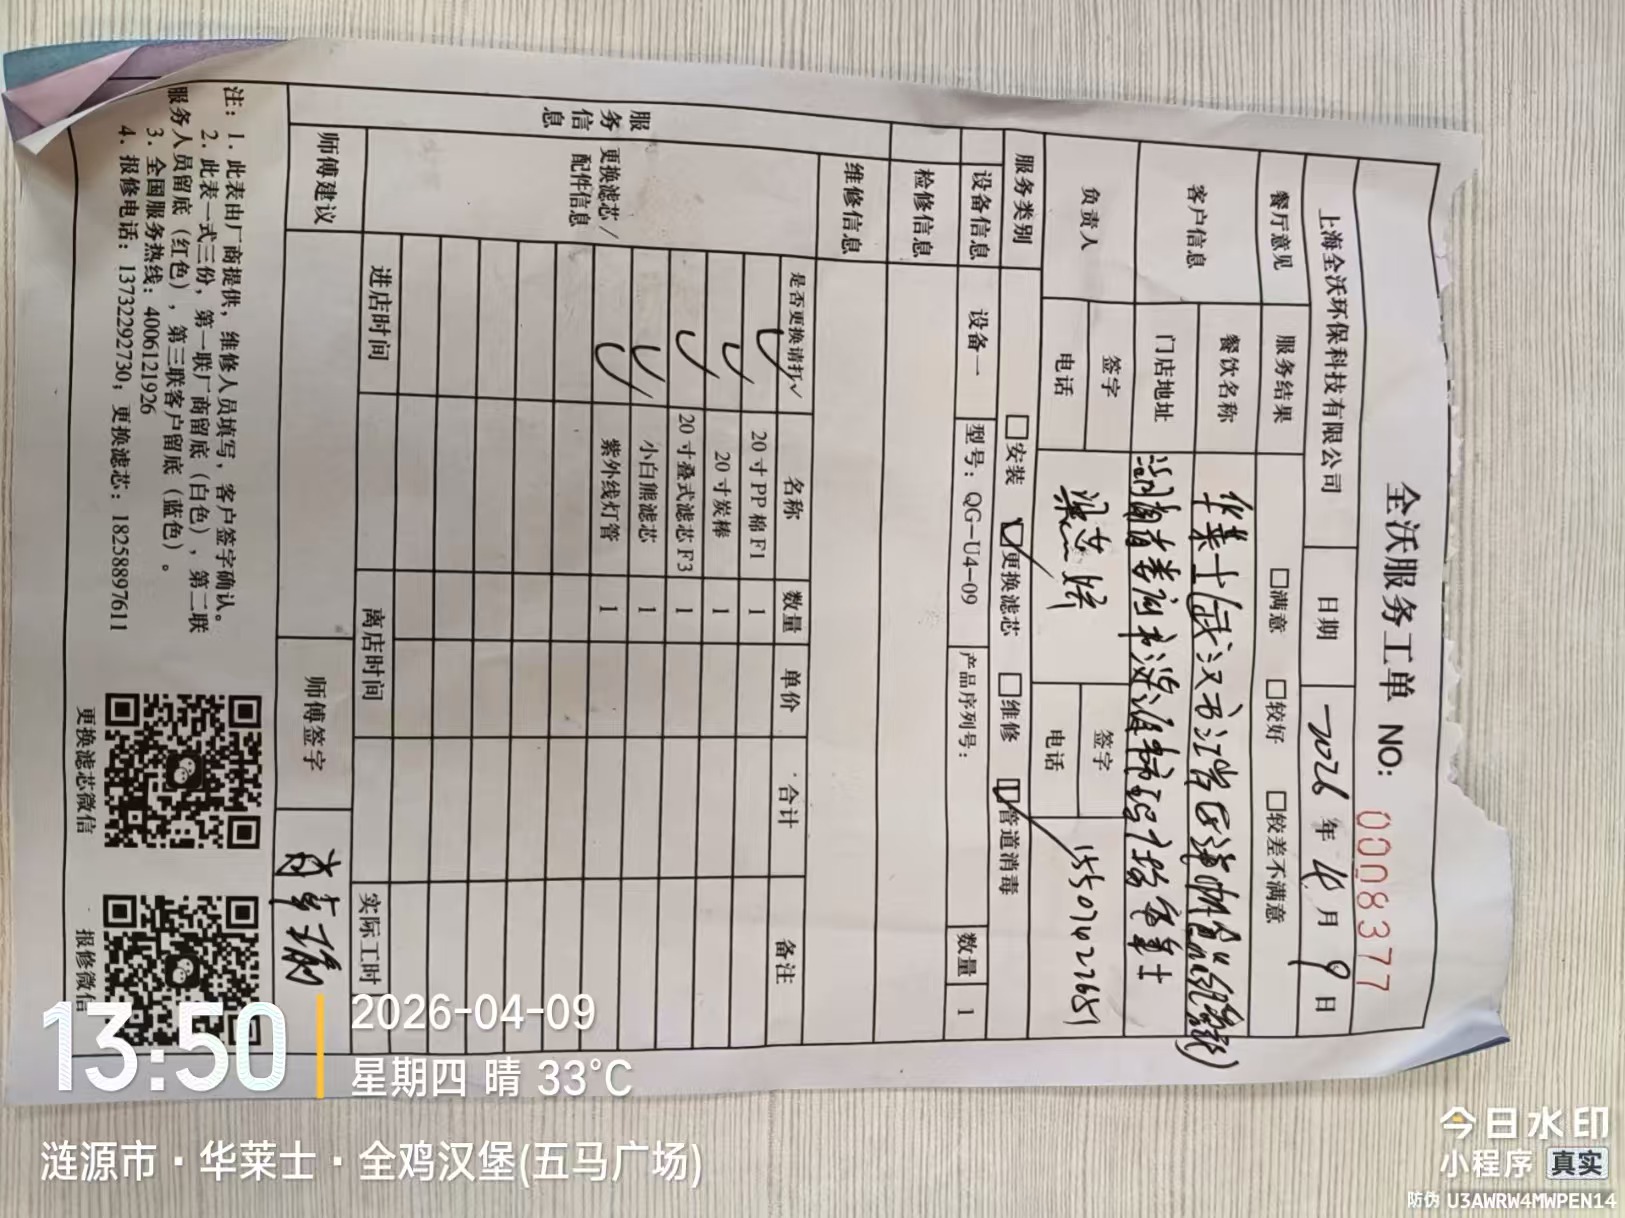 全沃服务工单 NO: 0008377
上海全沃环保科技有限公司 日期 2026年4月9日
餐厅意见 服务结果 □满意 □较好 □较差不满意
客户信息 餐饮名称 华莱士
门店地址 湖南省娄底市涟源市 华莱士
负责人 签字 签字
电话 电话 15507427651
服务类别 □安装 ☑更换滤芯 □维修 ☑管道消毒
设备信息 设备一 型号：QG-U4-09 产品序列号： 数量 1
检修信息
维修信息
服务信息
更换滤芯/配件信息
是否更换请打✓ 名称 数量 单价 合计 备注
✓ 20寸PP棉F1 1
✓ 20寸炭棒 1
✓ 20寸叠式滤芯F3 1
✓ 小白熊滤芯 1
✓ 紫外线灯管 1
进店时间 离店时间 实际工时
师傅建议 师傅签字
注：1. 此表由厂商提供，维修人员填写，客户签字确认。
2. 此表一式三份，第一联厂商留底（白色），第二联
服务人员留底（红色），第三联客户留底（蓝色）。
3. 全国服务热线：4006121926
4. 报修电话：13732292730，更换滤芯：18258897611
更换滤芯微信
报修微信
13:50
2026-04-09
星期四 晴 33°C
涟源市·华莱士·全鸡汉堡(五马广场)
今日水印
小程序 真实
防伪 U3AWRW4MWPEN14